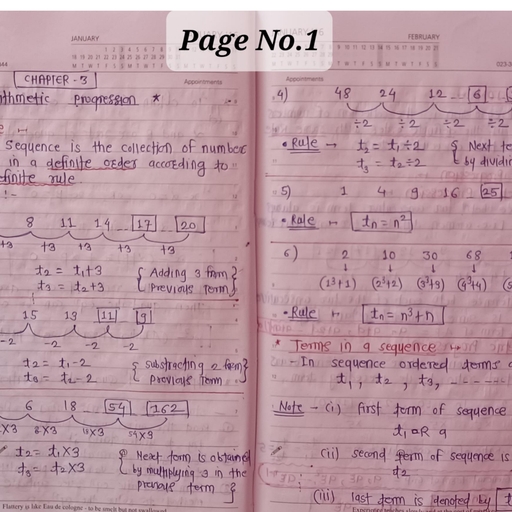 Page No.1
JANUARY
Appointments
CHAPTER - 3
ithmetic progression *
Sequence is the collection of number
in a definite order according to
efinite rule.
8 11 14 17 20
+3 +3 +3 +3 +3
t₂ = t₁+3 { Adding 3 from }
t₃ = t₂+3 { previous term }
15 13 11 9
-2 -2 -2 -2
t₂ = t₁-2 { substracting 2 from }
t₃ = t₂-2 { previous term }
6 18 54 162
X3 6X3 18X3 54X3
t₂ = t₁X3 Next term is obtained
t₃ = t₂X3 by multiplying 3 in the
previous term }
Flattery is like Eau de cologne - to be smelt but not swallowed.
FEBRUARY
Appointments
4) 48 24 12 6
÷2 ÷2 ÷2 ÷2
• Rule → t₂ = t₁÷2 { Next te
t₃ = t₂÷2 { by dividin
5) 1 4 9 16 25
• Rule → tn = n²
6) 2 10 30 68
↓ ↓ ↓ ↓
(1³+1) (2³+2) (3³+3) (4³+4)
• Rule → tn = n³+n
* Terms in a sequence
- In sequence ordered terms a
t₁, t₂, t₃, - - - - -
Note → (i) first term of sequence
t₁ OR a
(ii) second term of sequence is
t₂
(iii) last term is denoted by t